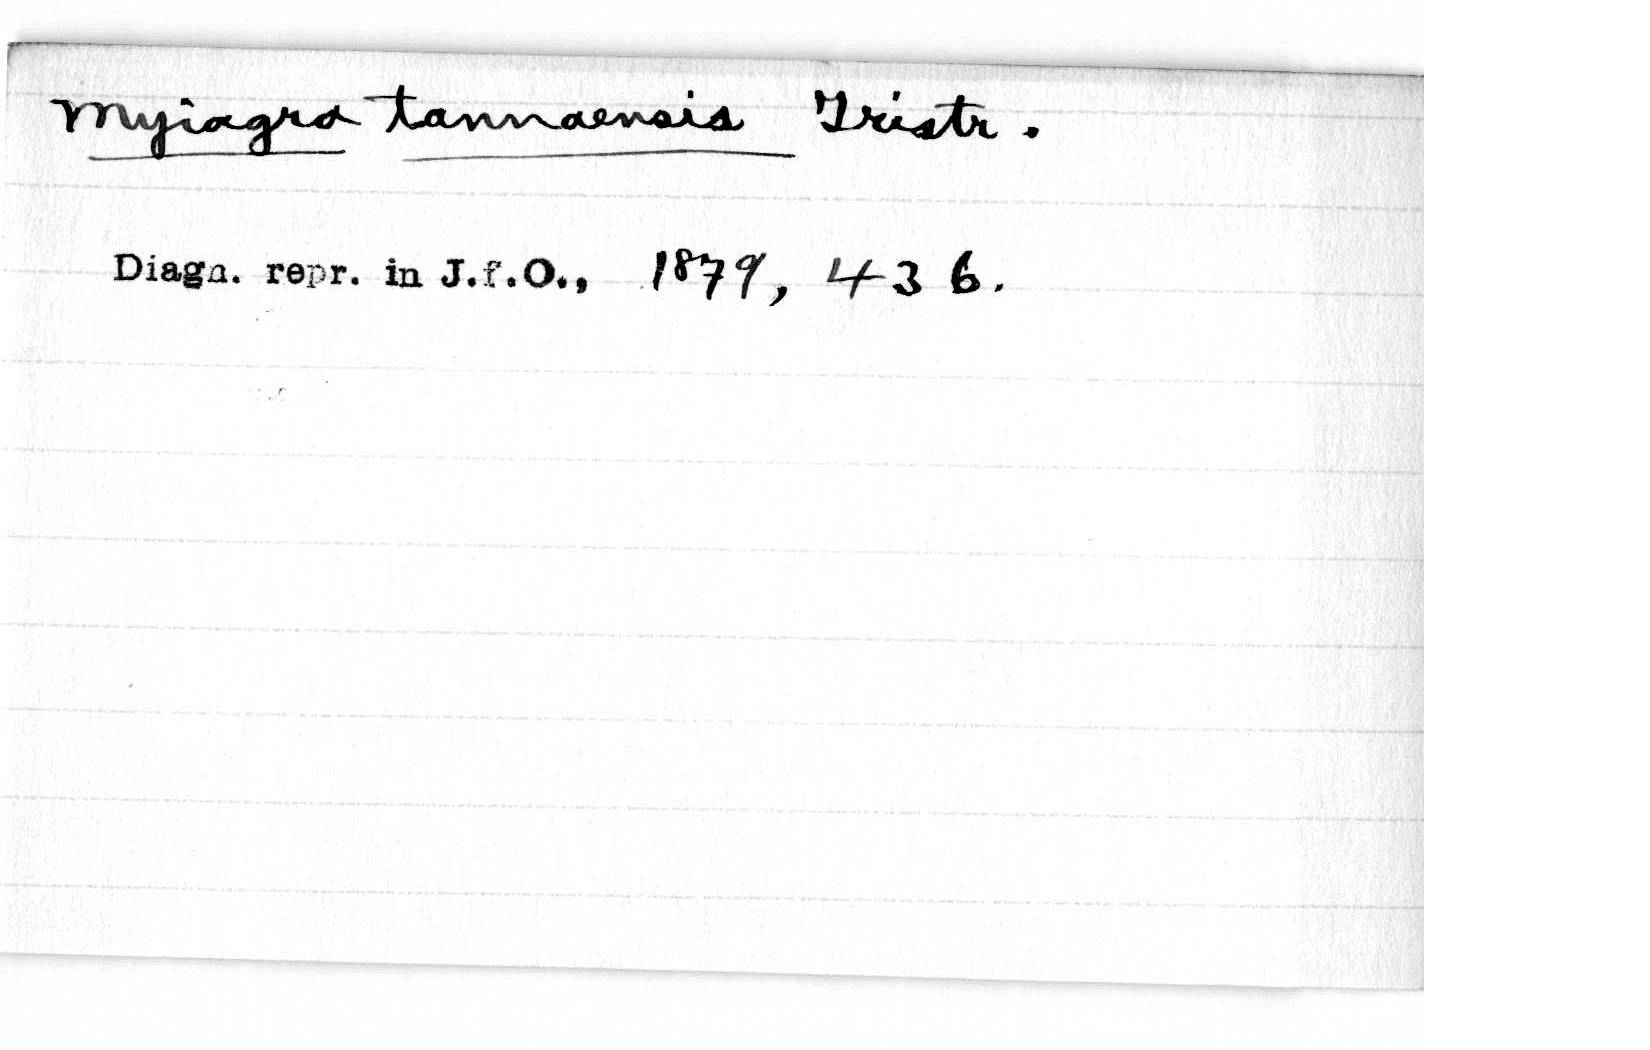 Myiagra tannaensis Tristr.
Diagn. repr. in J.f.O., 1879, 436.